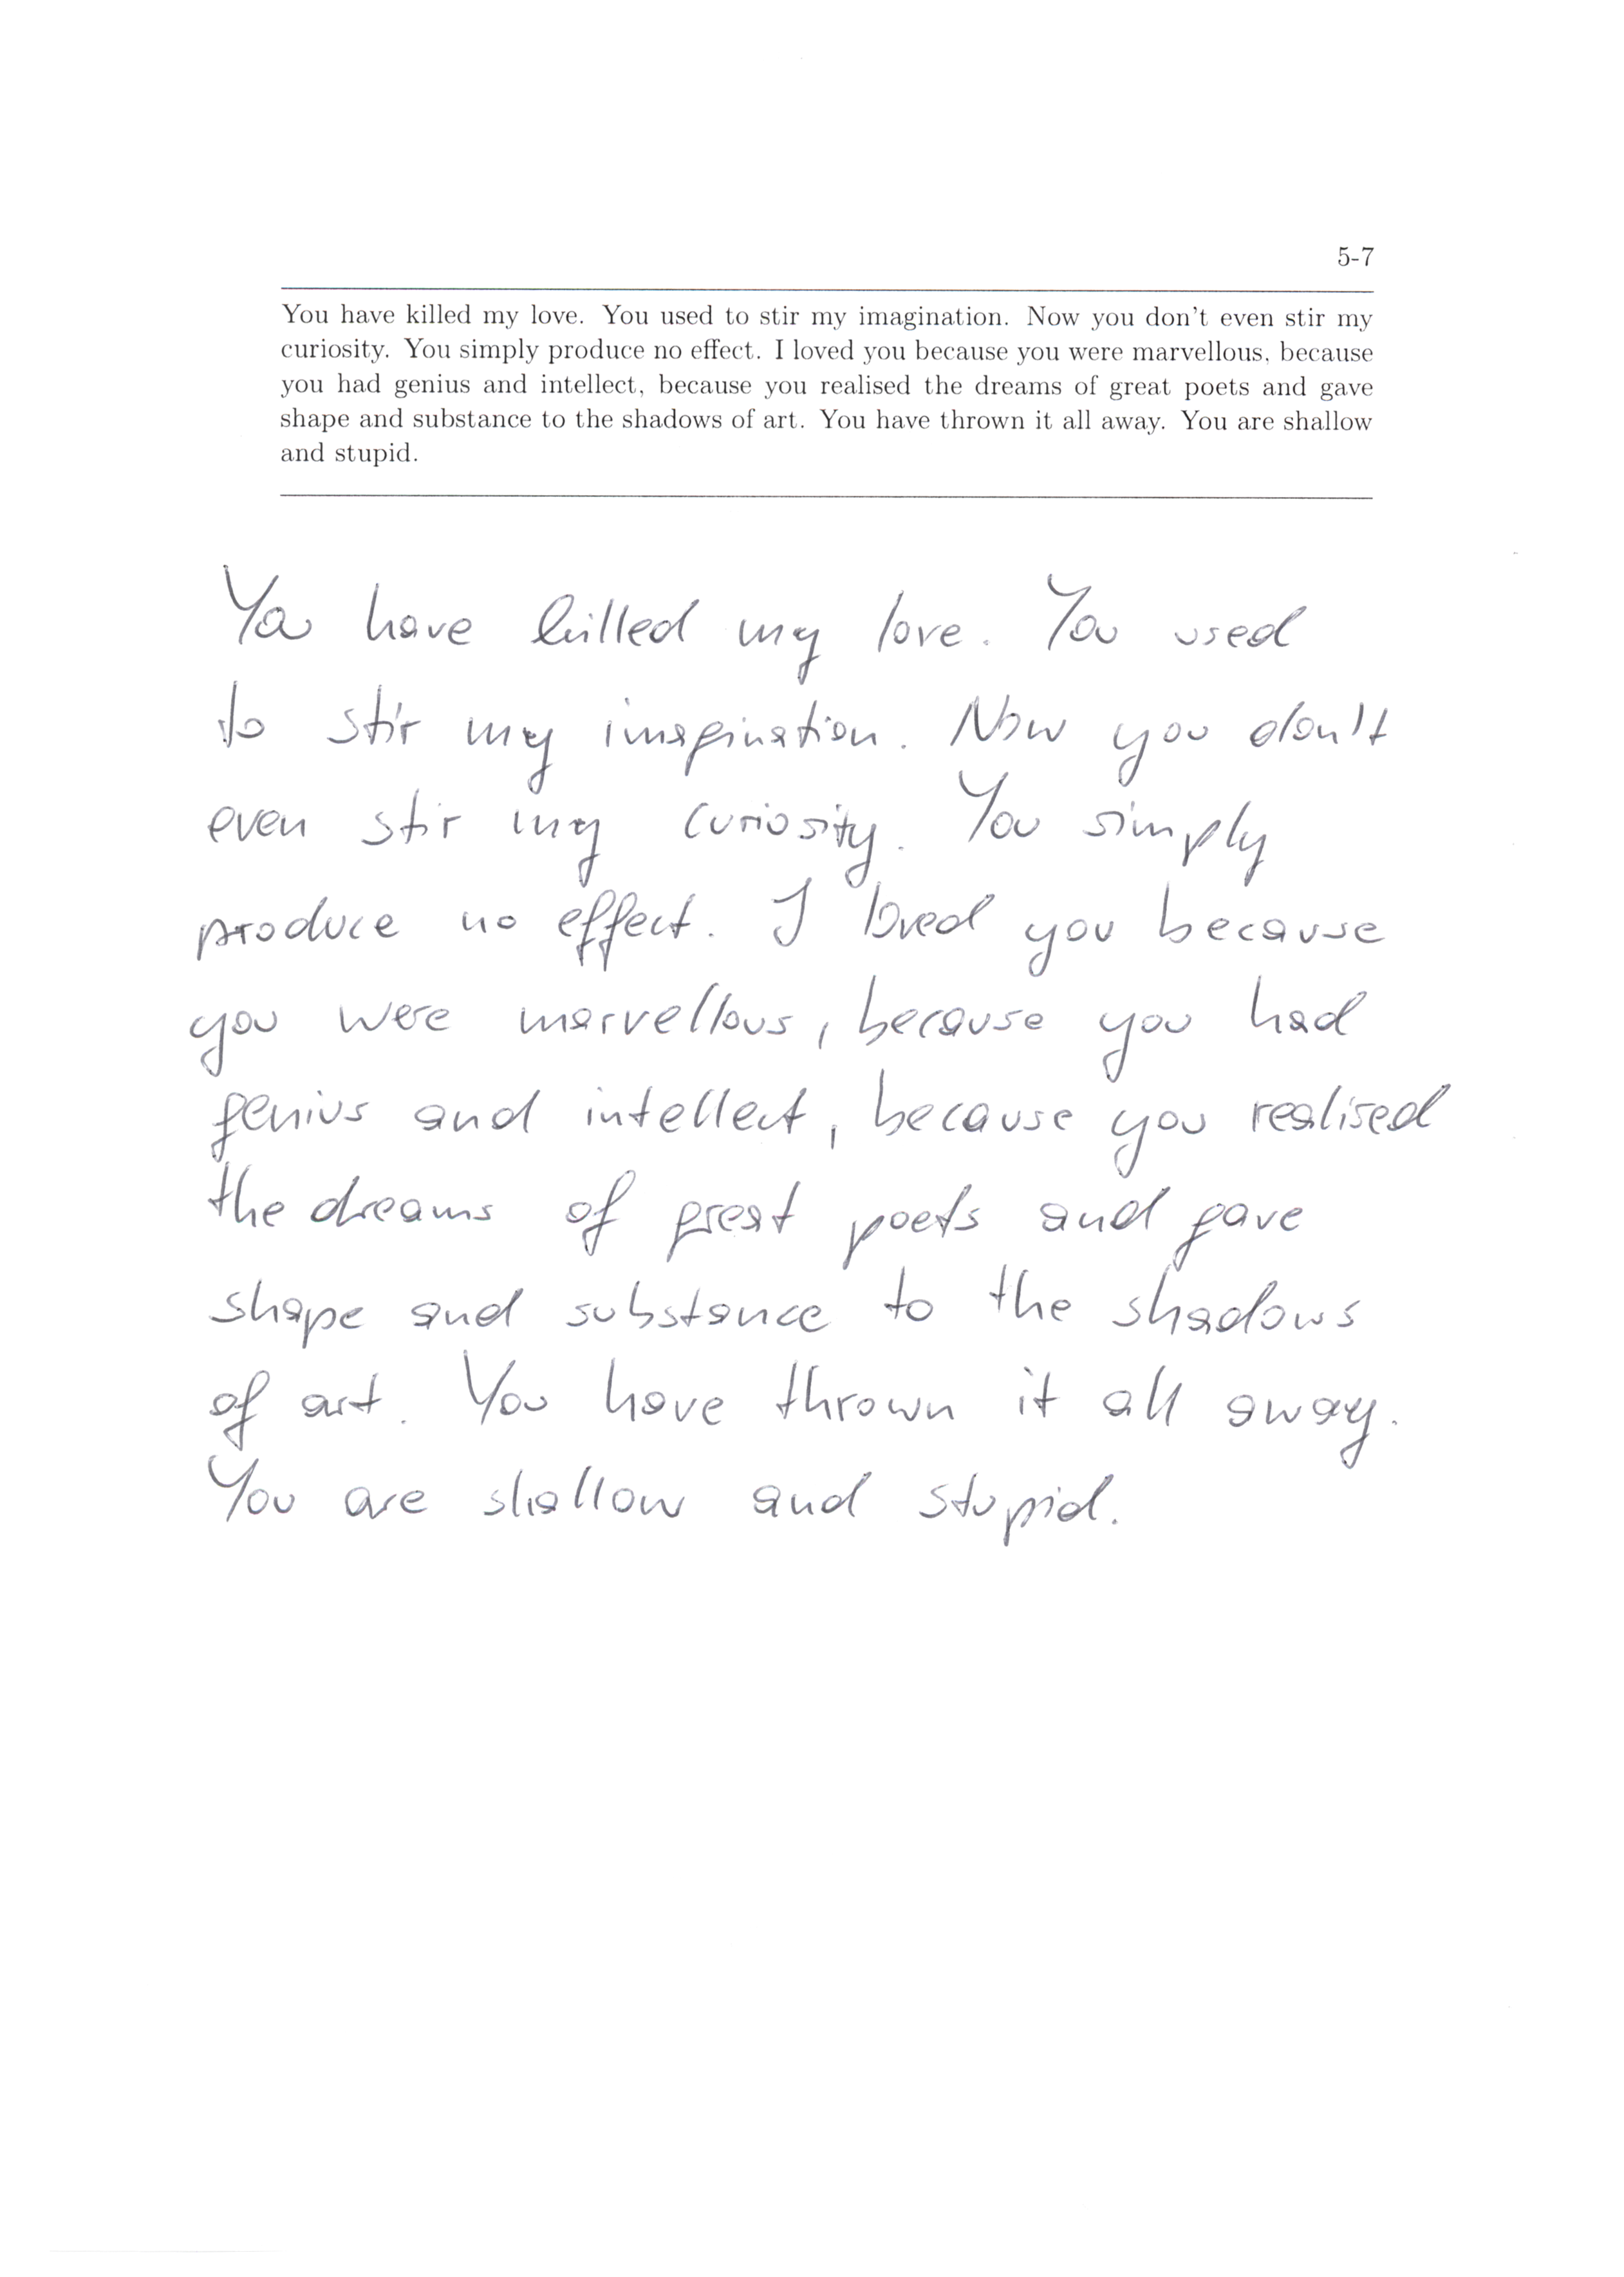 5-7
You have killed my love. You used to stir my imagination. Now you don't even stir my
curiosity. You simply produce no effect. I loved you because you were marvellous, because
you had genius and intellect, because you realised the dreams of great poets and gave
shape and substance to the shadows of art. You have thrown it all away. You are shallow
and stupid.
You have killed my love. You used
to stir my imagination. Now you don't
even stir my curiosity. You simply
produce no effect. I loved you because
you were marvellous, because you had
genius and intellect, because you realised
the dreams of great poets and gave
shape and substance to the shadows
of art. You have thrown it all away.
You are shallow and stupid.